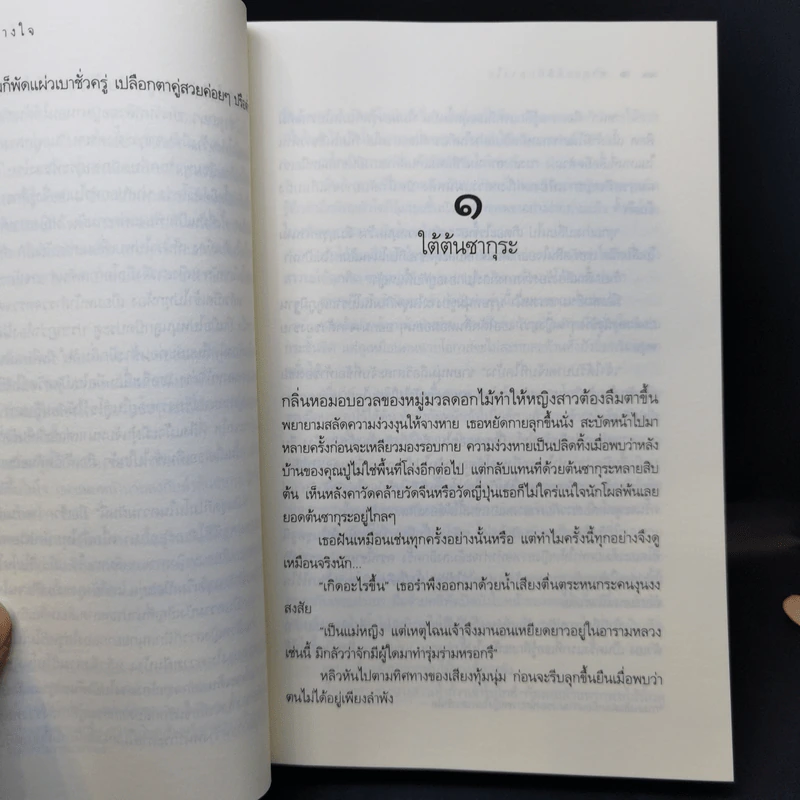 างใจ
ก็พัดแผ่วเบาชั่วครู่ เปลือกตาคู่สวยค่อยๆ ปรือ
๑
ใต้ต้นซากุระ
กลิ่นหอมอบอวลของหมู่มวลดอกไม้ทำให้หญิงสาวต้องลืมตาขึ้น
พยายามสลัดความง่วงงุนให้จางหาย เธอหยัดกายลุกขึ้นนั่ง สะบัดหน้าไปมา
หลายครั้งก่อนจะเหลียวมองรอบกาย ความง่วงหายเป็นปลิดทิ้งเมื่อพบว่าหลัง
บ้านของคุณปู่ไม่ใช่พื้นที่โล่งอีกต่อไป แต่กลับแทนที่ด้วยต้นซากุระหลายสิบ
ต้น เห็นหลังคาวัดคล้ายวัดจีนหรือวัดญี่ปุ่นเธอก็ไม่ใคร่แน่ใจนักโผล่พ้นเลย
ยอดต้นซากุระอยู่ไกลๆ
เธอฝันเหมือนเช่นทุกครั้งอย่างนั้นหรือ แต่ทำไมครั้งนี้ทุกอย่างจึงดู
เหมือนจริงนัก...
"เกิดอะไรขึ้น" เธอรำพึงออกมาด้วยน้ำเสียงตื่นตระหนกระคนงุนงง
สงสัย
"เป็นแม่หญิง แต่เหตุไฉนเจ้าจึงมานอนเหยียดยาวอยู่ในอารามหลวง
เช่นนี้ มิกลัวว่าจักมีผู้ใดมาทำรุ่มร่ามหรอกรึ"
หลิวหันไปตามทิศทางของเสียงทุ้มนุ่ม ก่อนจะรีบลุกขึ้นยืนเมื่อพบว่า
ตนไม่ได้อยู่เพียงลำพัง